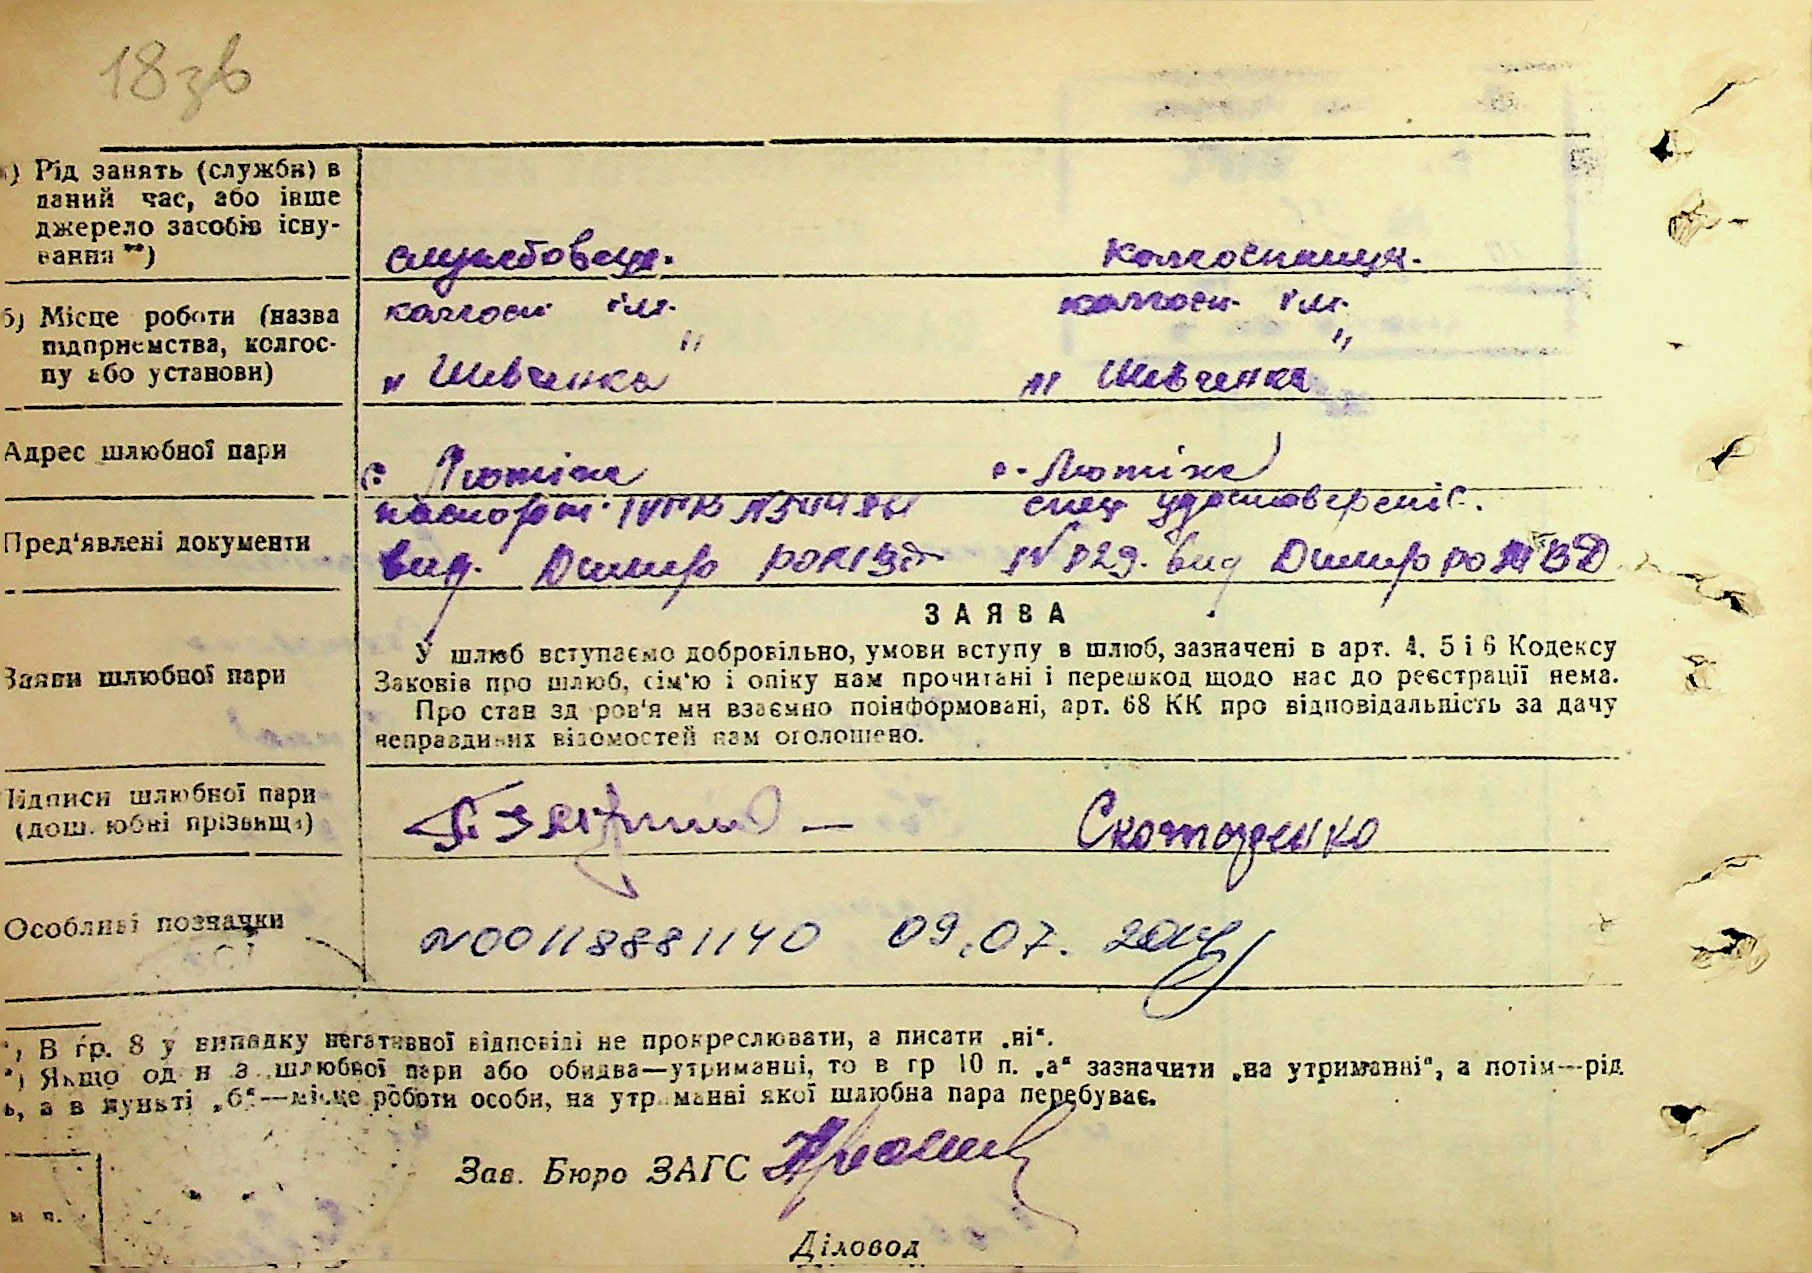 18зв
а) Рід занять (служби) в
даний час, або інше
джерело засобів існу-
вання **)
службовець.
Колгоспниця.
б) Місце роботи (назва
підприємства, колгос-
пу або установи)
колгосп ім.
„Шевченка"
колгосп ім.
„Шевченка"
Адрес шлюбної пари
с. Лютіж
с. Лютіж
Пред'явлені документи
паспорт
вид. Димер
спец удостоверені
№ 129. вид Димер РО МВД
ЗАЯВА
Заяви шлюбної пари
У шлюб вступаємо добровільно, умови вступу в шлюб, зазначені в арт. 4, 5 і 6 Кодексу
Законів про шлюб, сім'ю і опіку нам прочитані і перешкод щодо нас до реєстрації нема.
Про стан здоров'я ми взаємно поінформовані, арт. 68 КК про відповідальність за дачу
неправдивих відомостей нам оголошено.
Підписи шлюбної пари
(дошлюбні прізвища)
Скотаренко
Особливі позначки
N00118881140 09.07.
*) В гр. 8 у випадку негативної відповіді не прокреслювати, а писати „ні“.
**) Якщо один з шлюбної пари або обидва—утриманці, то в гр 10 п. „а“ зазначити „на утриманні“, а потім—рід
ь, а в пункті „б“—місце роботи особи, на утриманні якої шлюбна пара перебуває.
Зав. Бюро ЗАГС
м п.
Діловод